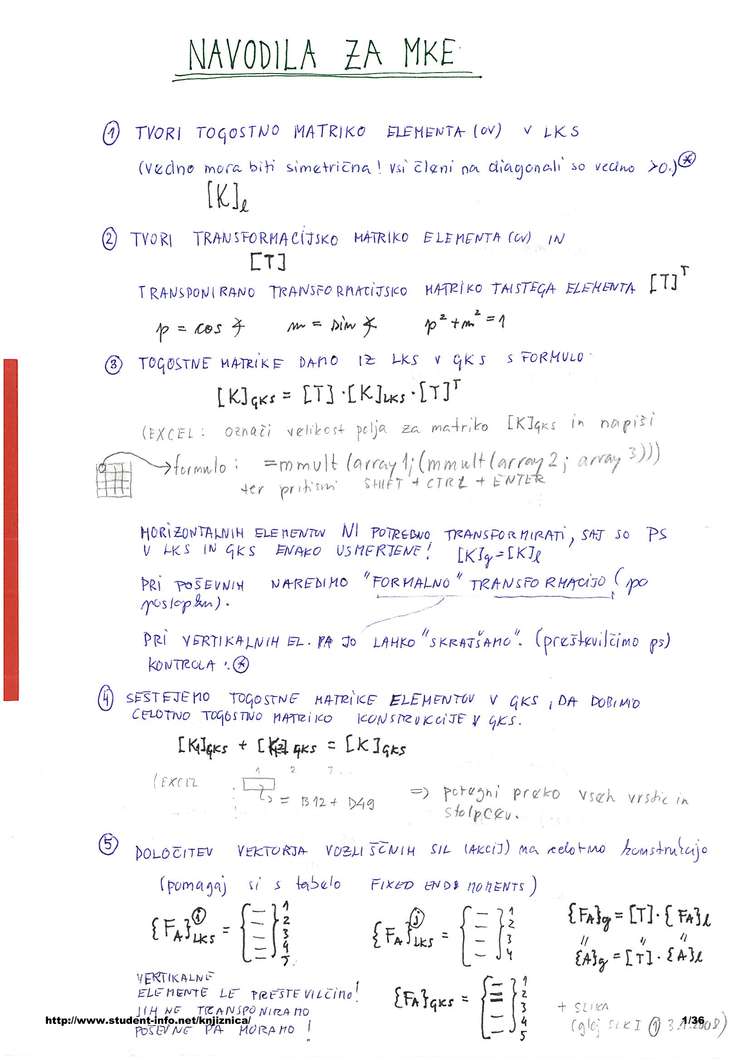 NAVODILA ZA MKE
① TVORI TOGOSTNO MATRIKO ELEMENTA (OV) V LKS
(vedno mora biti simetrična! vsi členi na diagonali so vedno >0.) *
[K]ℓ
② TVORI TRANSFORMACIJSKO MATRIKO ELEMENTA (OV) IN
[T]
TRANSPONIRANO TRANSFORMACIJSKO MATRIKO TAISTEGA ELEMENTA [T]ᵀ
p = cos ∢ m = sim ∢ p² + m² = 1
③ TOGOSTNE MATRIKE DAMO IZ LKS V GKS S FORMULO
[K]GKS = [T]·[K]LKS·[T]ᵀ
(EXCEL: označi velikost polja za matriko [K]GKS in napiši
formulo: =mmult(array1;(mmult(array2; array3)))
ter pritisni SHIFT + CTRL + ENTER
HORIZONTALNIH ELEMENTOV NI POTREBNO TRANSFORMIRATI, SAJ SO PS
V LKS IN GKS ENAKO USMERJENE! [K]g = [K]ℓ
PRI POŠEVNIH NAREDIMO "FORMALNO" TRANSFORMACIJO (po
postopku).
PRI VERTIKALNIH EL. PA JO LAHKO "SKRAJŠAMO". (preštevilčimo ps)
KONTROLA: *
④ SEŠTEJEMO TOGOSTNE MATRIKE ELEMENTOV V GKS, DA DOBIMO
CELOTNO TOGOSTNO MATRIKO KONSTRUKCIJE V GKS.
[K1]GKS + [K2]GKS = [K]GKS
1 2 7...
(EXCEL : = B12 + D49 => potegni preko vseh vrstic in
stolpcev.
⑤ DOLOČITEV VEKTORJA VOZLIŠČNIH SIL (AKCIJ) na celotno konstrukcijo
(pomagaj si s tabelo FIXED ENDS MOMENTS)
{FA}ⁱLKS = {– – – – –} 1 2 3 4 5
{FA}ʲLKS = {– – – –} 1 2 3 4
{FA}g = [T]·{FA}ℓ
" " "
{A}g = [T]·{A}ℓ
VERTIKALNE
ELEMENTE LE PREŠTEVILČIMO!
JIH NE TRANSPONIRAMO
POŠEVNE PA MORAMO!
{FA}GKS = {– – – – –} 1 2 3 4 5
+ SLIKA
(glej SLKI ①
http://www.student-info.net/knjiznica/
1/36